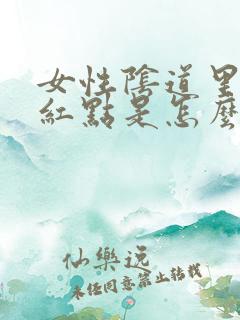 女性陰道里
紅點是怎麼
仙樂说
未任同意禁止转载